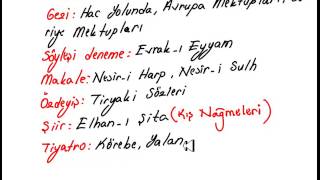 Gezi: Hac Yolunda, Avrupa Mektupları,
riye Mektupları
Söyleşi deneme: Evrak-ı Eyyam
Makale: Nesir-i Harp, Nesir-i Sulh
Özdeyiş: Tiryaki Sözleri
Şiir: Elhan-ı Şita (Kış Nağmeleri)
Tiyatro: Körebe, Yalan